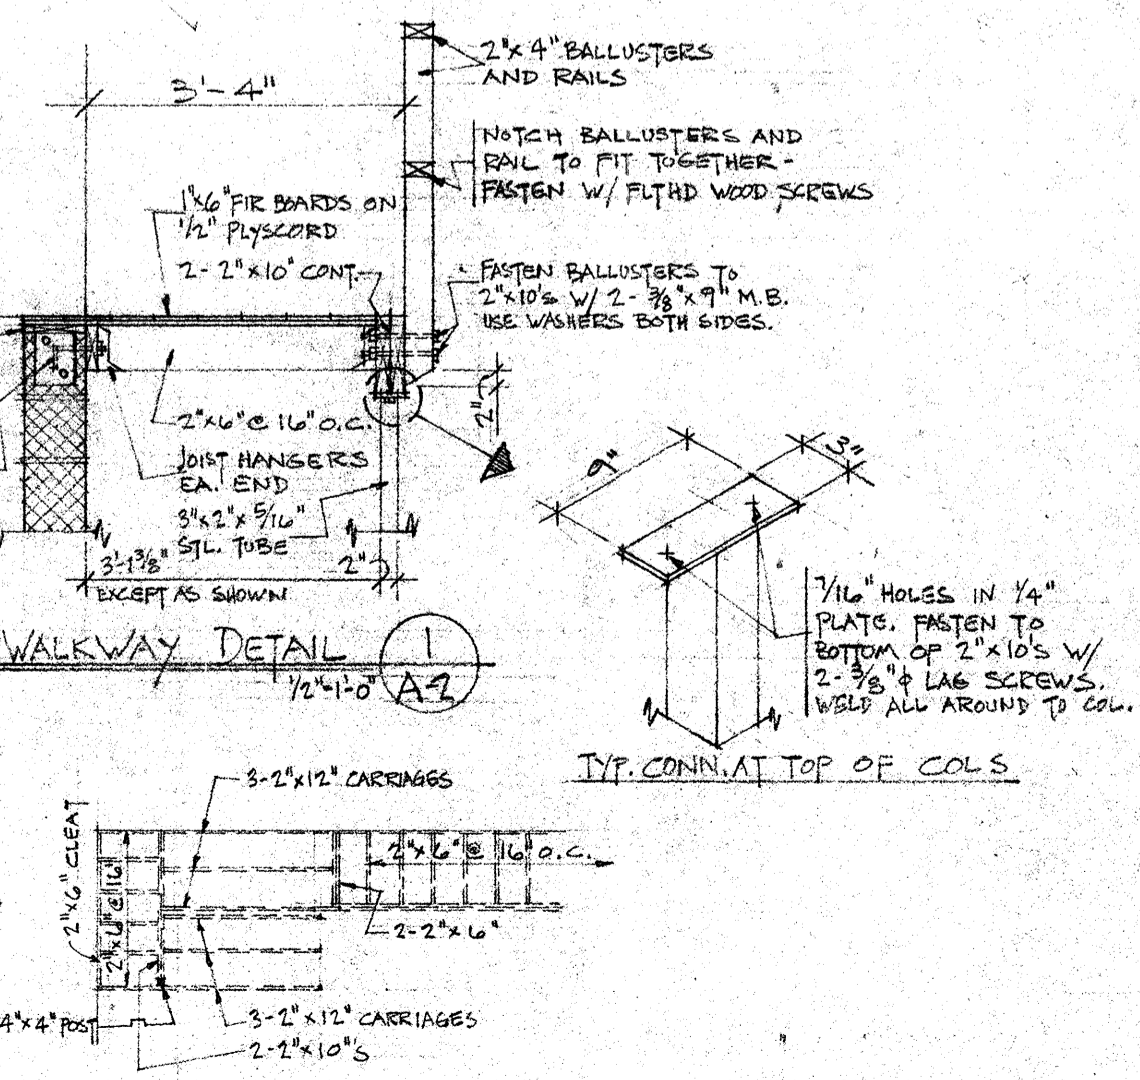 2"x 4" BALLUSTERS
AND RAILS
3'-4"
NOTCH BALLUSTERS AND
RAIL TO FIT TOGETHER -
FASTEN W/ FLTHD WOOD SCREWS
1"x6" FIR BOARDS ON
1/2" PLYSCORD
2- 2"x10" CONT.
FASTEN BALLUSTERS TO
2"x10's W/ 2- 3/8"x9" M.B.
USE WASHERS BOTH SIDES.
2"
2"x6"@ 16" O.C.
JOIST HANGERS
EA. END
3"x2"x 5/16"
STL. TUBE
3'-1 3/8"
2"
EXCEPT AS SHOWN
WALKWAY DETAIL 1
1/2"-1'-0" A-2
9"
3"
7/16" HOLES IN 1/4"
PLATE. FASTEN TO
BOTTOM OF 2"x10'S W/
2- 3/8"ϕ LAG SCREWS.
WELD ALL AROUND TO COL.
TYP. CONN. AT TOP OF COLS
3-2"x12" CARRIAGES
2"x6" CLEAT
2"x6"@ 16"
2"x6"@ 16" O.C.
2-2"x6"
4"x4" POST
3-2"x12" CARRIAGES
2-2"x10"'S